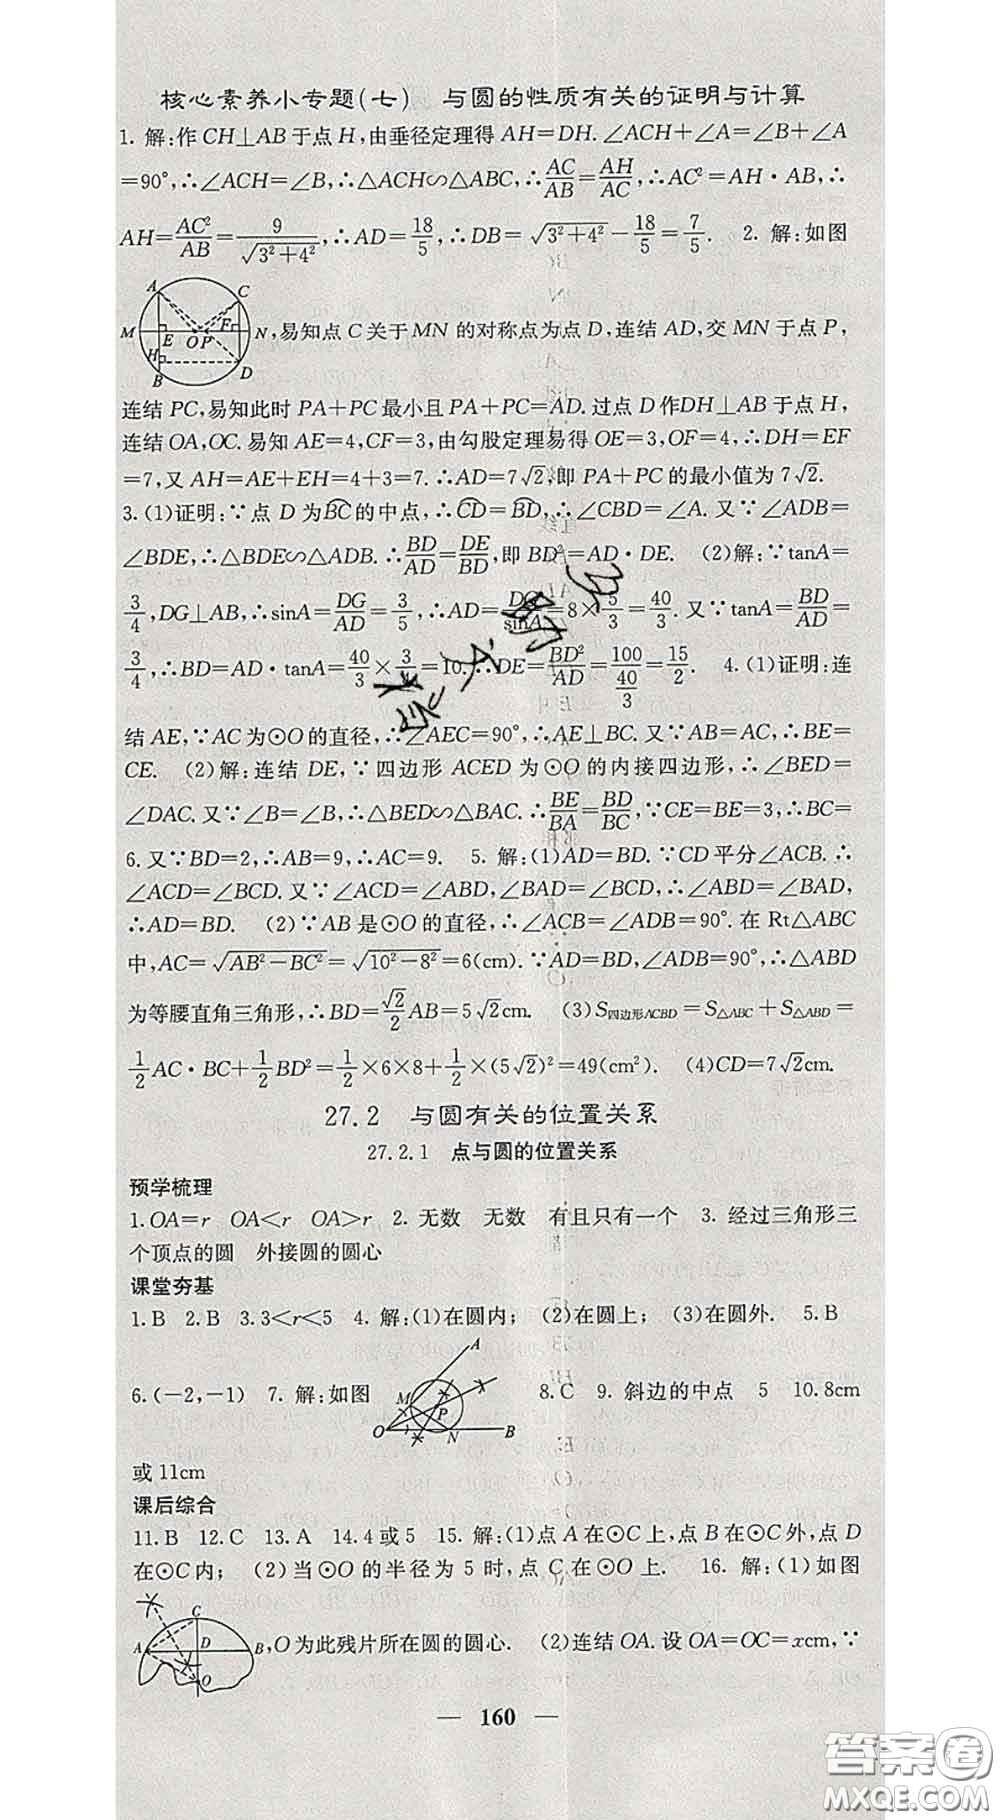 核心素养小专题(七)　与圆的性质有关的证明与计算
1. 解:作 CH⊥AB 于点 H,由垂径定理得 AH=DH.∠ACH+∠A=∠B+∠A
=90°,∴∠ACH=∠B,∴△ACH∽△ABC,∴AC/AB=AH/AC,∴AC²=AH·AB,∴
AH=AC²/AB=9/√(3²+4²),∴AD=18/5,∴DB=√(3²+4²)-18/5=7/5.　2. 解:如图
A C M E O P F N H B D
,易知点 C 关于 MN 的对称点为点 D,连结 AD,交 MN 于点 P,
连结 PC,易知此时 PA+PC 最小且 PA+PC=AD.过点 D 作DH⊥AB 于点 H,
连结 OA,OC.易知 AE=4,CF=3,由勾股定理易得 OE=3,OF=4,∴DH=EF
=7,又 AH=AE+EH=4+3=7.∴AD=7√2,即 PA+PC 的最小值为 7√2.
3.(1)证明:∵点 D 为BC的中点,∴CD=BD,∴∠CBD=∠A.又∵∠ADB=
∠BDE,∴△BDE∽△ADB.∴BD/AD=DE/BD,即 BD²=AD·DE.　(2)解:∵tanA=
3/4,DG⊥AB,∴sinA=DG/AD=3/5,∴AD=DG/sinA=8×5/3=40/3.又∵tanA=BD/AD=
3/4,∴BD=AD·tanA=40/3×3/4=10.∴DE=BD²/AD=100/(40/3)=15/2.　4.(1)证明:连
结 AE,∵AC 为⊙O 的直径,∴∠AEC=90°,∴AE⊥BC.又∵AB=AC,∴BE=
CE.　(2)解:连结 DE,∵四边形 ACED 为⊙O 的内接四边形,∴∠BED=
∠DAC.又∵∠B=∠B,∴△BED∽△BAC.∴BE/BA=BD/BC,∵CE=BE=3,∴BC=
6.又∵BD=2,∴AB=9,∴AC=9.　5. 解:(1)AD=BD.∵CD 平分∠ACB.∴
∠ACD=∠BCD.又∵∠ACD=∠ABD,∠BAD=∠BCD,∴∠ABD=∠BAD,
∴AD=BD.　(2)∵AB 是⊙O 的直径,∴∠ACB=∠ADB=90°.在 Rt△ABC
中,AC=√(AB²-BC²)=√(10²-8²)=6(cm).∵AD=BD,∠ADB=90°,∴△ABD
为等腰直角三角形,∴BD=√2/2AB=5√2cm.　(3)S四边形ACBD=S△ABC+S△ABD=
1/2AC·BC+1/2BD²=1/2×6×8+1/2×(5√2)²=49(cm²).　(4)CD=7√2cm.
27.2　与圆有关的位置关系
27.2.1　点与圆的位置关系
预学梳理
1.OA=r　OA<r　OA>r　2. 无数　无数　有且只有一个　3. 经过三角形三
个顶点的圆　外接圆的圆心
课堂夯基
1.B　2.B　3.3<r<5　4. 解:(1)在圆内;　(2)在圆上;　(3)在圆外.　5.B
6.(-2,-1)　7. 解:如图
A M P O N B
8.C　9. 斜边的中点　5　10.8cm
或 11cm
课后综合
11.B　12.C　13.A　14.4 或 5　15. 解:(1)点 A 在⊙C 上,点 B 在⊙C 外,点 D
在⊙C 内;　(2)当⊙O 的半径为 5 时,点 C 在⊙O 上.　16. 解:(1)如图
C A D B O
,O 为此残片所在圆的圆心.　(2)连结 OA.设 OA=OC=xcm,∵
— 160 —
答案圈
MXQE.COM